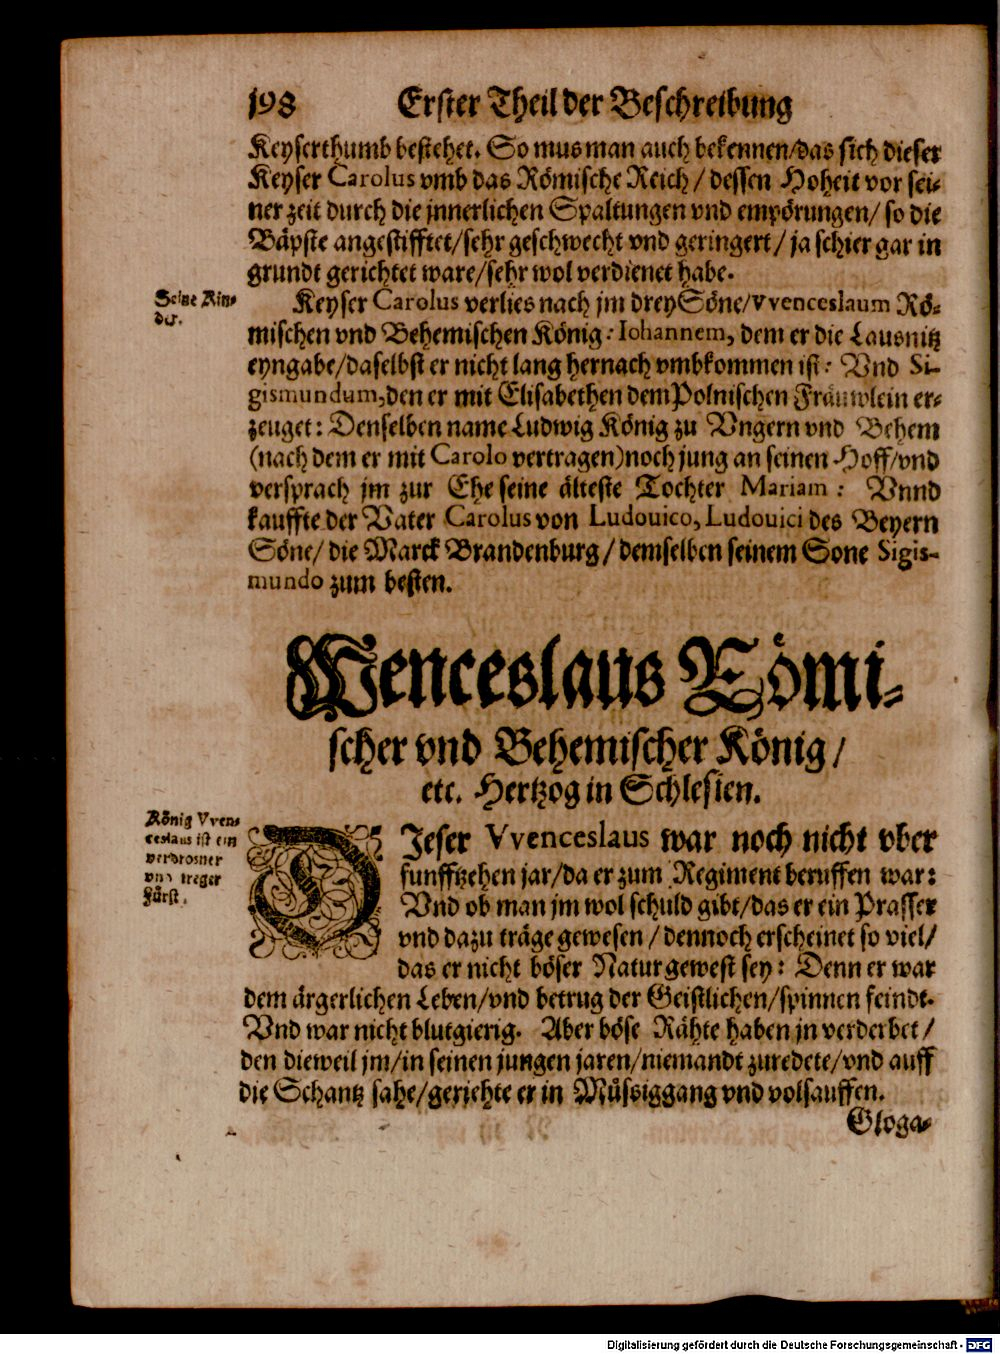 198 Erster Theil der Beschreibung
Keyserthumb bestehet. So mus man auch bekennen/das sich dieser
Keyser Carolus vmb das Römische Reich/dessen Hoheit vor sei-
ner zeit durch die jnnerlichen Spaltungen vnd empörungen/ so die
Bäpste angestifftet/sehr geschwecht vnd geringert/ ja schier gar in
grundt gerichtet ware/sehr wol verdienet habe.
Seine Kin-
der.
Keyser Carolus verlies nach jm drey Söne/Vvenceslaum Rö-
mischen vnd Behemischen König: Iohannem, dem er die Lausnitz
eyngabe/daselbst er nicht lang hernach vmbkommen ist: Vnd Si-
gismundum,den er mit Elisabethen dem Polnischen Fräuwlein er-
zeuget: Denselben name Ludwig König zu Vngern vnd Behem
(nach dem er mit Carolo vertragen)noch jung an seinen Hoff/vnd
versprach jm zur Ehe seine älteste Tochter Mariam: Vnnd
kauffte der Vater Carolus von Ludouico, Ludouici des Beyern
Söne/ die Marck Brandenburg/demselben seinem Sone Sigis-
mundo zum besten.
Wenceslaus Römi-
scher vnd Behemischer König/
etc. Hertzog in Schlesien.
König Vven-
ceslaus ist ein
verdrosner
vnd treger
Fürst.
DJeser Vvenceslaus war noch nicht vber
funfftzehen jar/da er zum Regiment beruffen war:
Vnd ob man jm wol schuld gibt/das er ein Prasser
vnd dazu träge gewesen/dennoch erscheinet so viel/
das er nicht böser Natur gewest sey: Denn er war
dem ärgerlichen Leben/vnd betrug der Geistlichen/spinnen feindt.
Vnd war nicht blutgierig. Aber böse Rähte haben jn verderbet/
den dieweil jm/in seinen jungen jaren/niemandt zuredete/vnd auff
die Schantz sahe/geriehte er in Müssiggang vnd volsauffen.
Gloga-
Digitalisierung gefördert durch die Deutsche Forschungsgemeinschaft - DFG